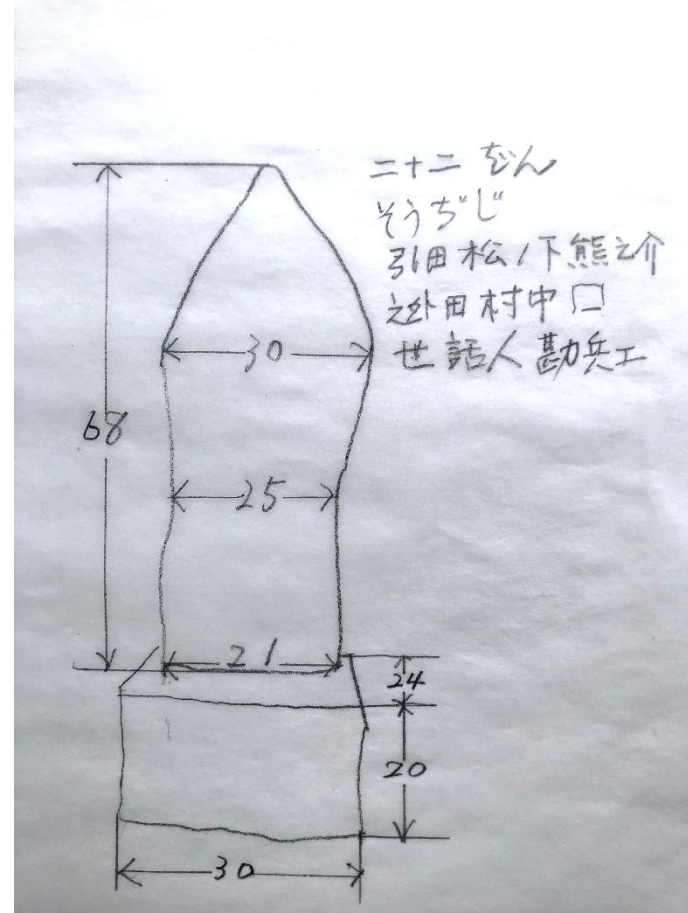 二十二 をん
そうぢじ
引田 松ノ下熊之介
田村中 □
世話人 勘兵エ
30
68
25
21
24
20
30